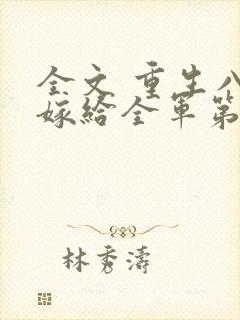 全文 重生八
嫁给全军第
林秀濤